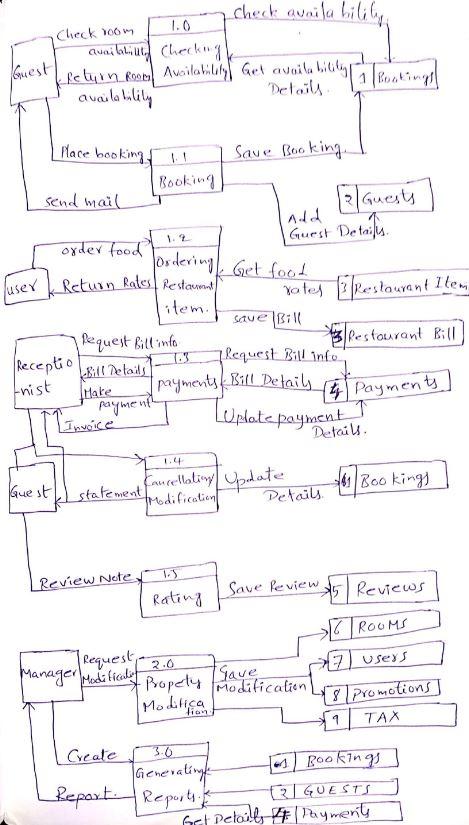 Check availability
1.0
Check room
availability
Checking
Availability
Guest
Return Room
availability
Get availability
Details.
1 Bookings
Place booking
1.1
Booking
Save Booking
send mail
2 Guests
Add
Guest Details.
order food
1.2
Ordering
Restaurant
item.
user
Return Rates
Get food
rates
3 Restaurant Item
save Bill
3 Restaurant Bill
Request Bill info
1.3
Request Bill info
Receptio
-nist
Bill Details
payments
Bill Details
4 Payments
Make
payment
Invoice
Update payment
Details.
1.4
Cancellation/
Modification
Guest
statement
Update
Details.
1 Bookings
Review Note
1.5
Rating
Save Review
5 Reviews
6 ROOMS
Manager
Request
Modification
2.0
Propety
Modifica
tion
Save
Modification
7 Users
8 promotions
9 TAX
Create
3.0
Generating
Reports.
1 Bookings
Report.
2 GUESTS
Get Details
4 Payments